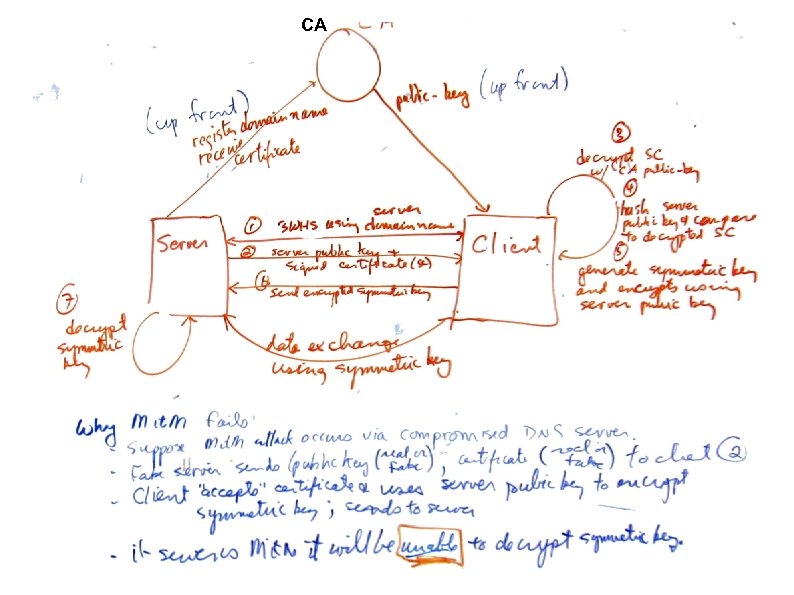 CA
CA
(up front)
register domain name
receive
certificate
public-key (up front)
Server
Client
server
① 3WHS using domain name
② server public key +
signed certificate (sc)
⑥
send encrypted symmetric key
③
decrypt SC
w/ CA public-key
④
hash server
public key & compare
to decrypted SC
⑤
generate symmetric key
and encrypts using
server public key
⑦
decrypt
symmetric
key
data exchange
using symmetric key
Why MitM fails:
- Suppose MitM attack occurs via compromised DNS server.
- Fake server sends (public key (real or fake), certificate (real or fake) to client ②
- Client "accepts" certificate & uses server public key to encrypt
symmetric key; sends to server
- if server is MitM it will be unable to decrypt symmetric key.